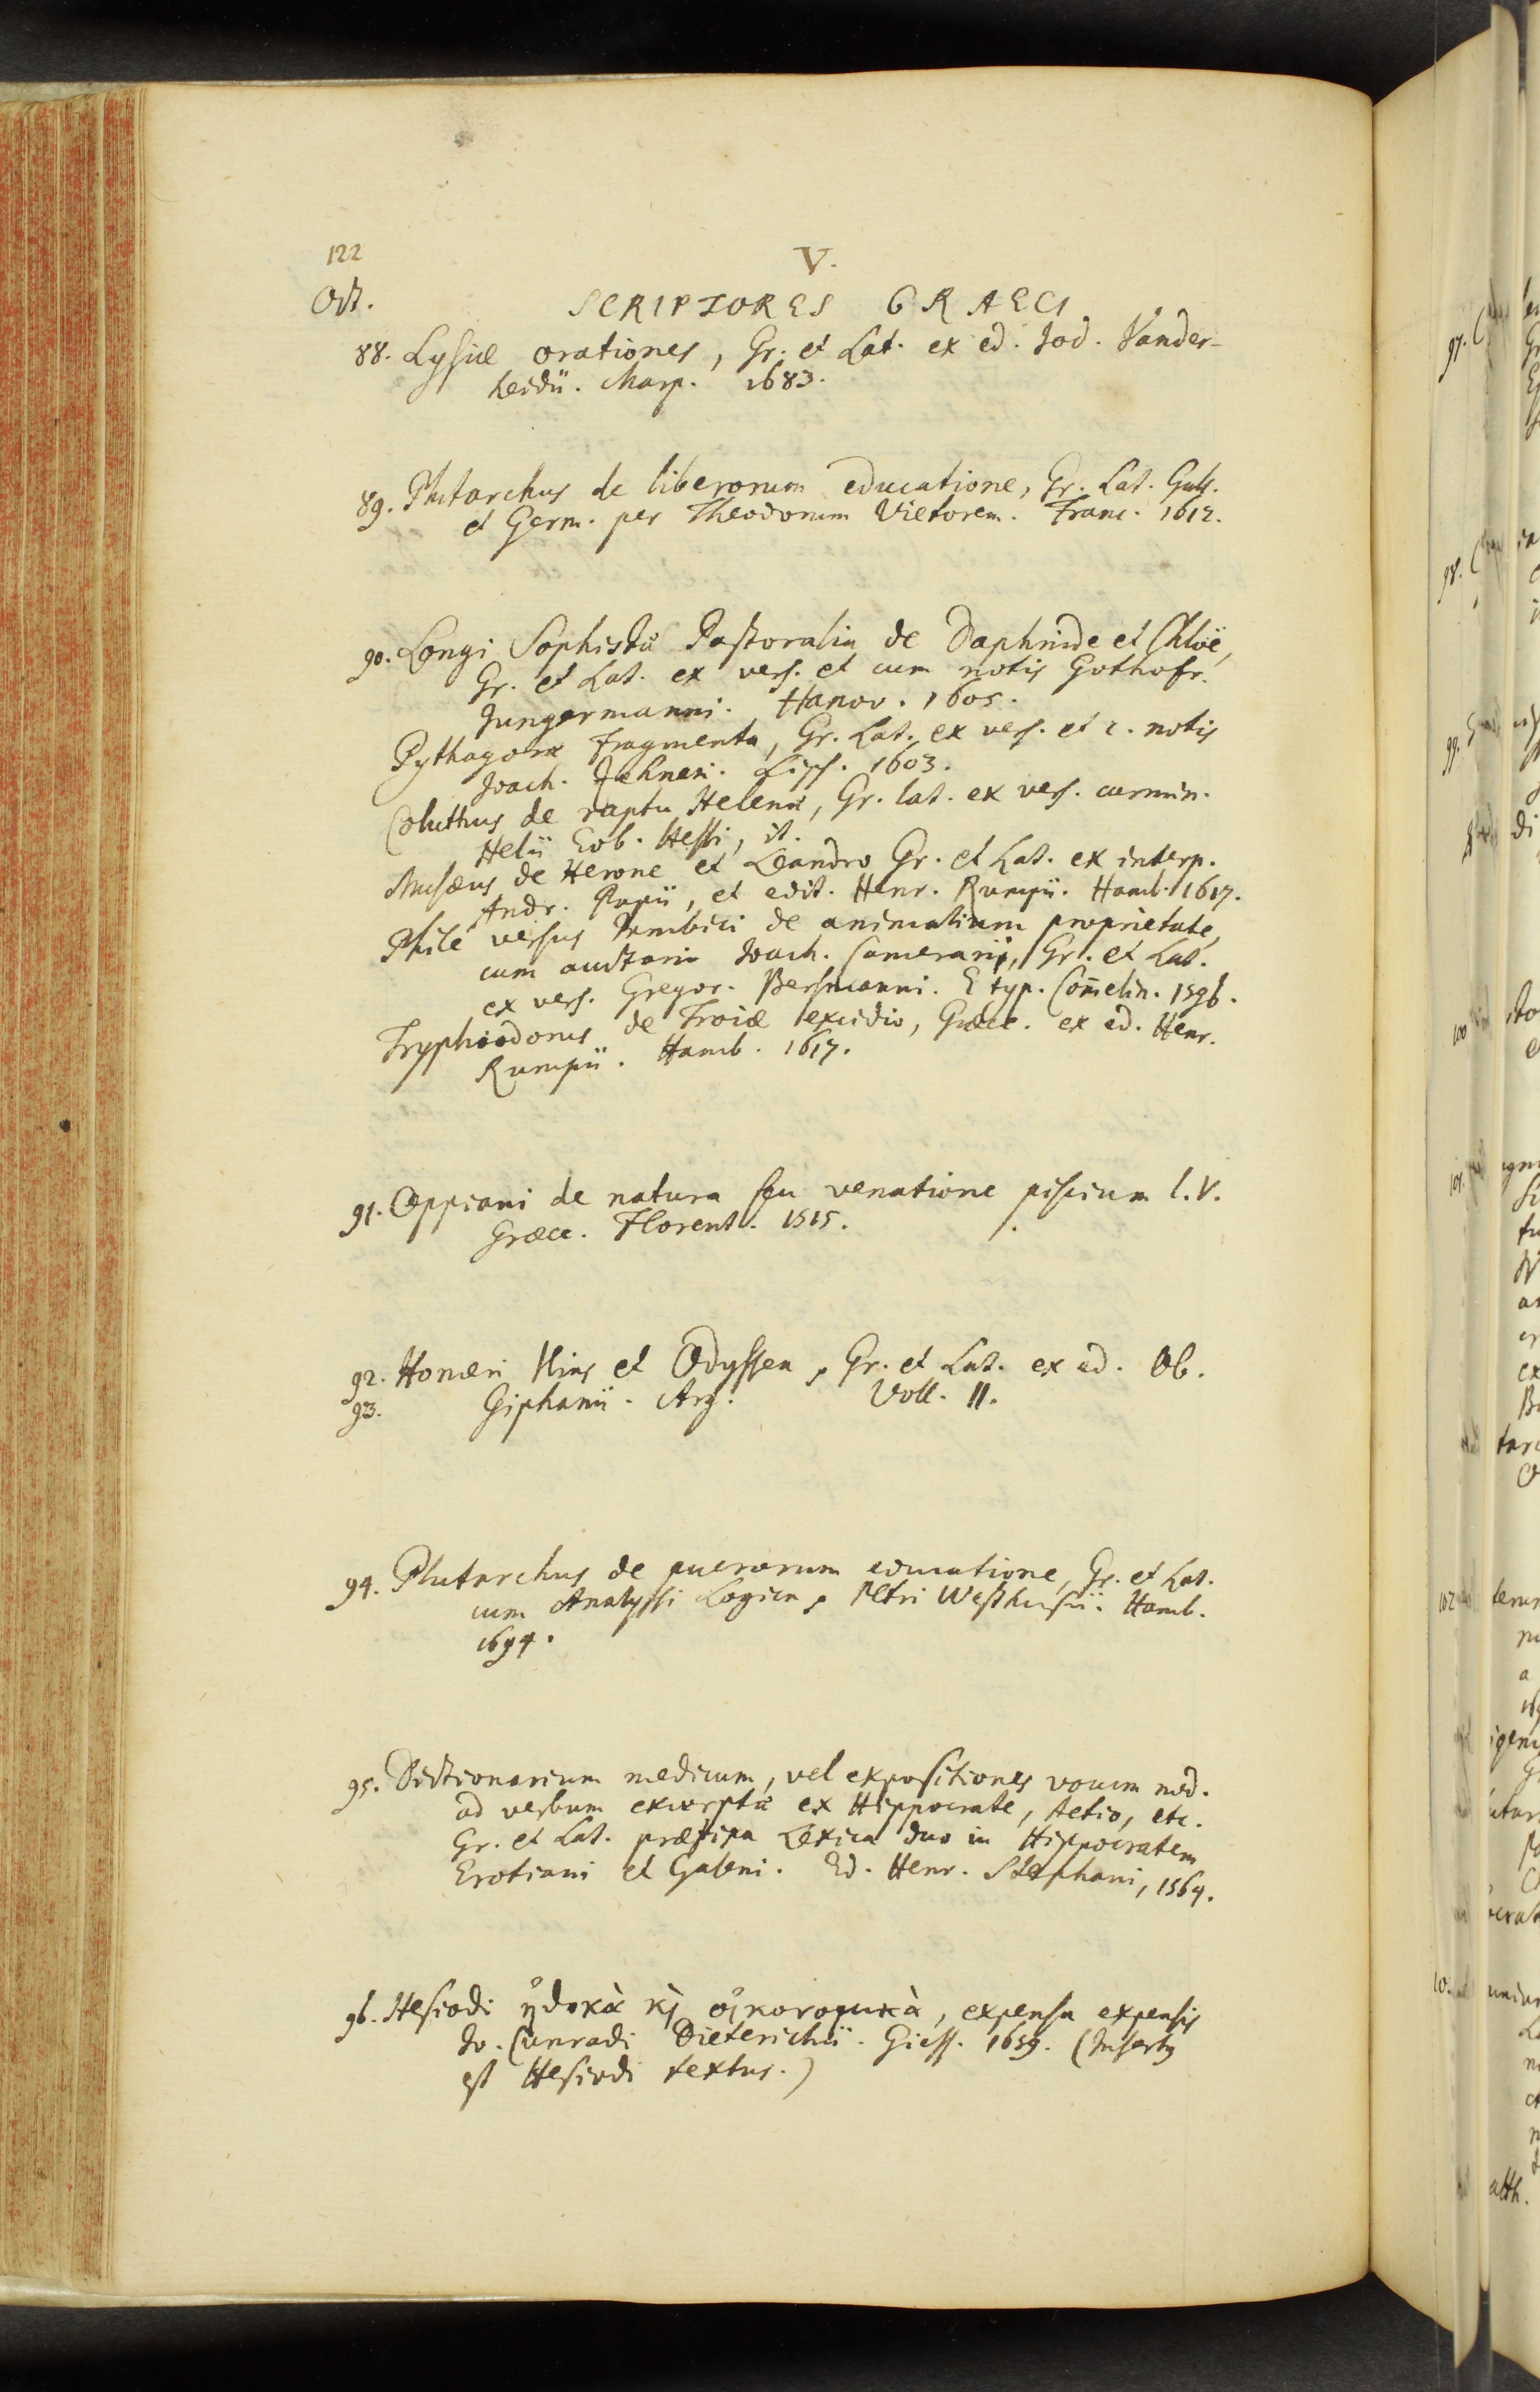 122
V.
Oct.
SCRIPTORES GRAECI
88. Lysiæ orationes, Gr. et Lat. ex ed. Jod. Vander-
heidii. Marp. 1683.
89. Plutarchus de liberorum educatione, Gr. Lat. Gall.
et Germ. per Theodorum Vietorem. Franc. 1612.
90. Longi Sophistæ Pastoralia de Daphnide et Chloë,
Gr. et Lat. ex vers. et cum notis Gothofr.
Jungermanni. Hanov. 1605.
Pythagoræ fragmenta, Gr. Lat. ex vers. et c. notis
Joach. Zehneri. Lips. 1603.
Coluthus de raptu Helenæ, Gr. lat. ex vers. carmin.
Helii Eob. Hessi, it.
Musæus de Herone et Leandro Gr. et Lat. ex interp.
Andr. Papii, et edit. Henr. Rumpii. Hamb. 1617.
Phile versus Iambici de animalium proprietate,
cum auctario Joach. Camerarii, Gr. et Lat.
ex vers. Gregor. Bersmanni. E typ. Com̄elin. 1596.
Tryphiodorus de Troiæ excidio, Græce. ex ed. Henr.
Rumpii. Hamb. 1617.
91. Oppiani de natura seu venatione piscium l. V.
Græce. Florent. 1515.
92. Homeri Ilias et Odyssea, Gr. et Lat. ex ed. Ob.
93. Giphanii. Arg. Voll. II.
94. Plutarchus de puerorum educatione, Gr. et Lat.
cum Analysi Logica, Petri Westhusii. Hamb.
1694.
95. Dictionarium medicum, vel expositiones vocum med.
ad verbum excerptæ ex Hippocrate, Aetio, etc.
Gr. et Lat. Lexica duo in Hippocratem
Erotiani et Galeni. Ed. Henr. Stephani, 1564.
96. Hesiodi ἠθικὰ κὶ οἰκονομικὰ, expensa expensis
Jo. Cunradi Dieterichii. Giess. 1659. (Insertus
est Hesiodi textus.)